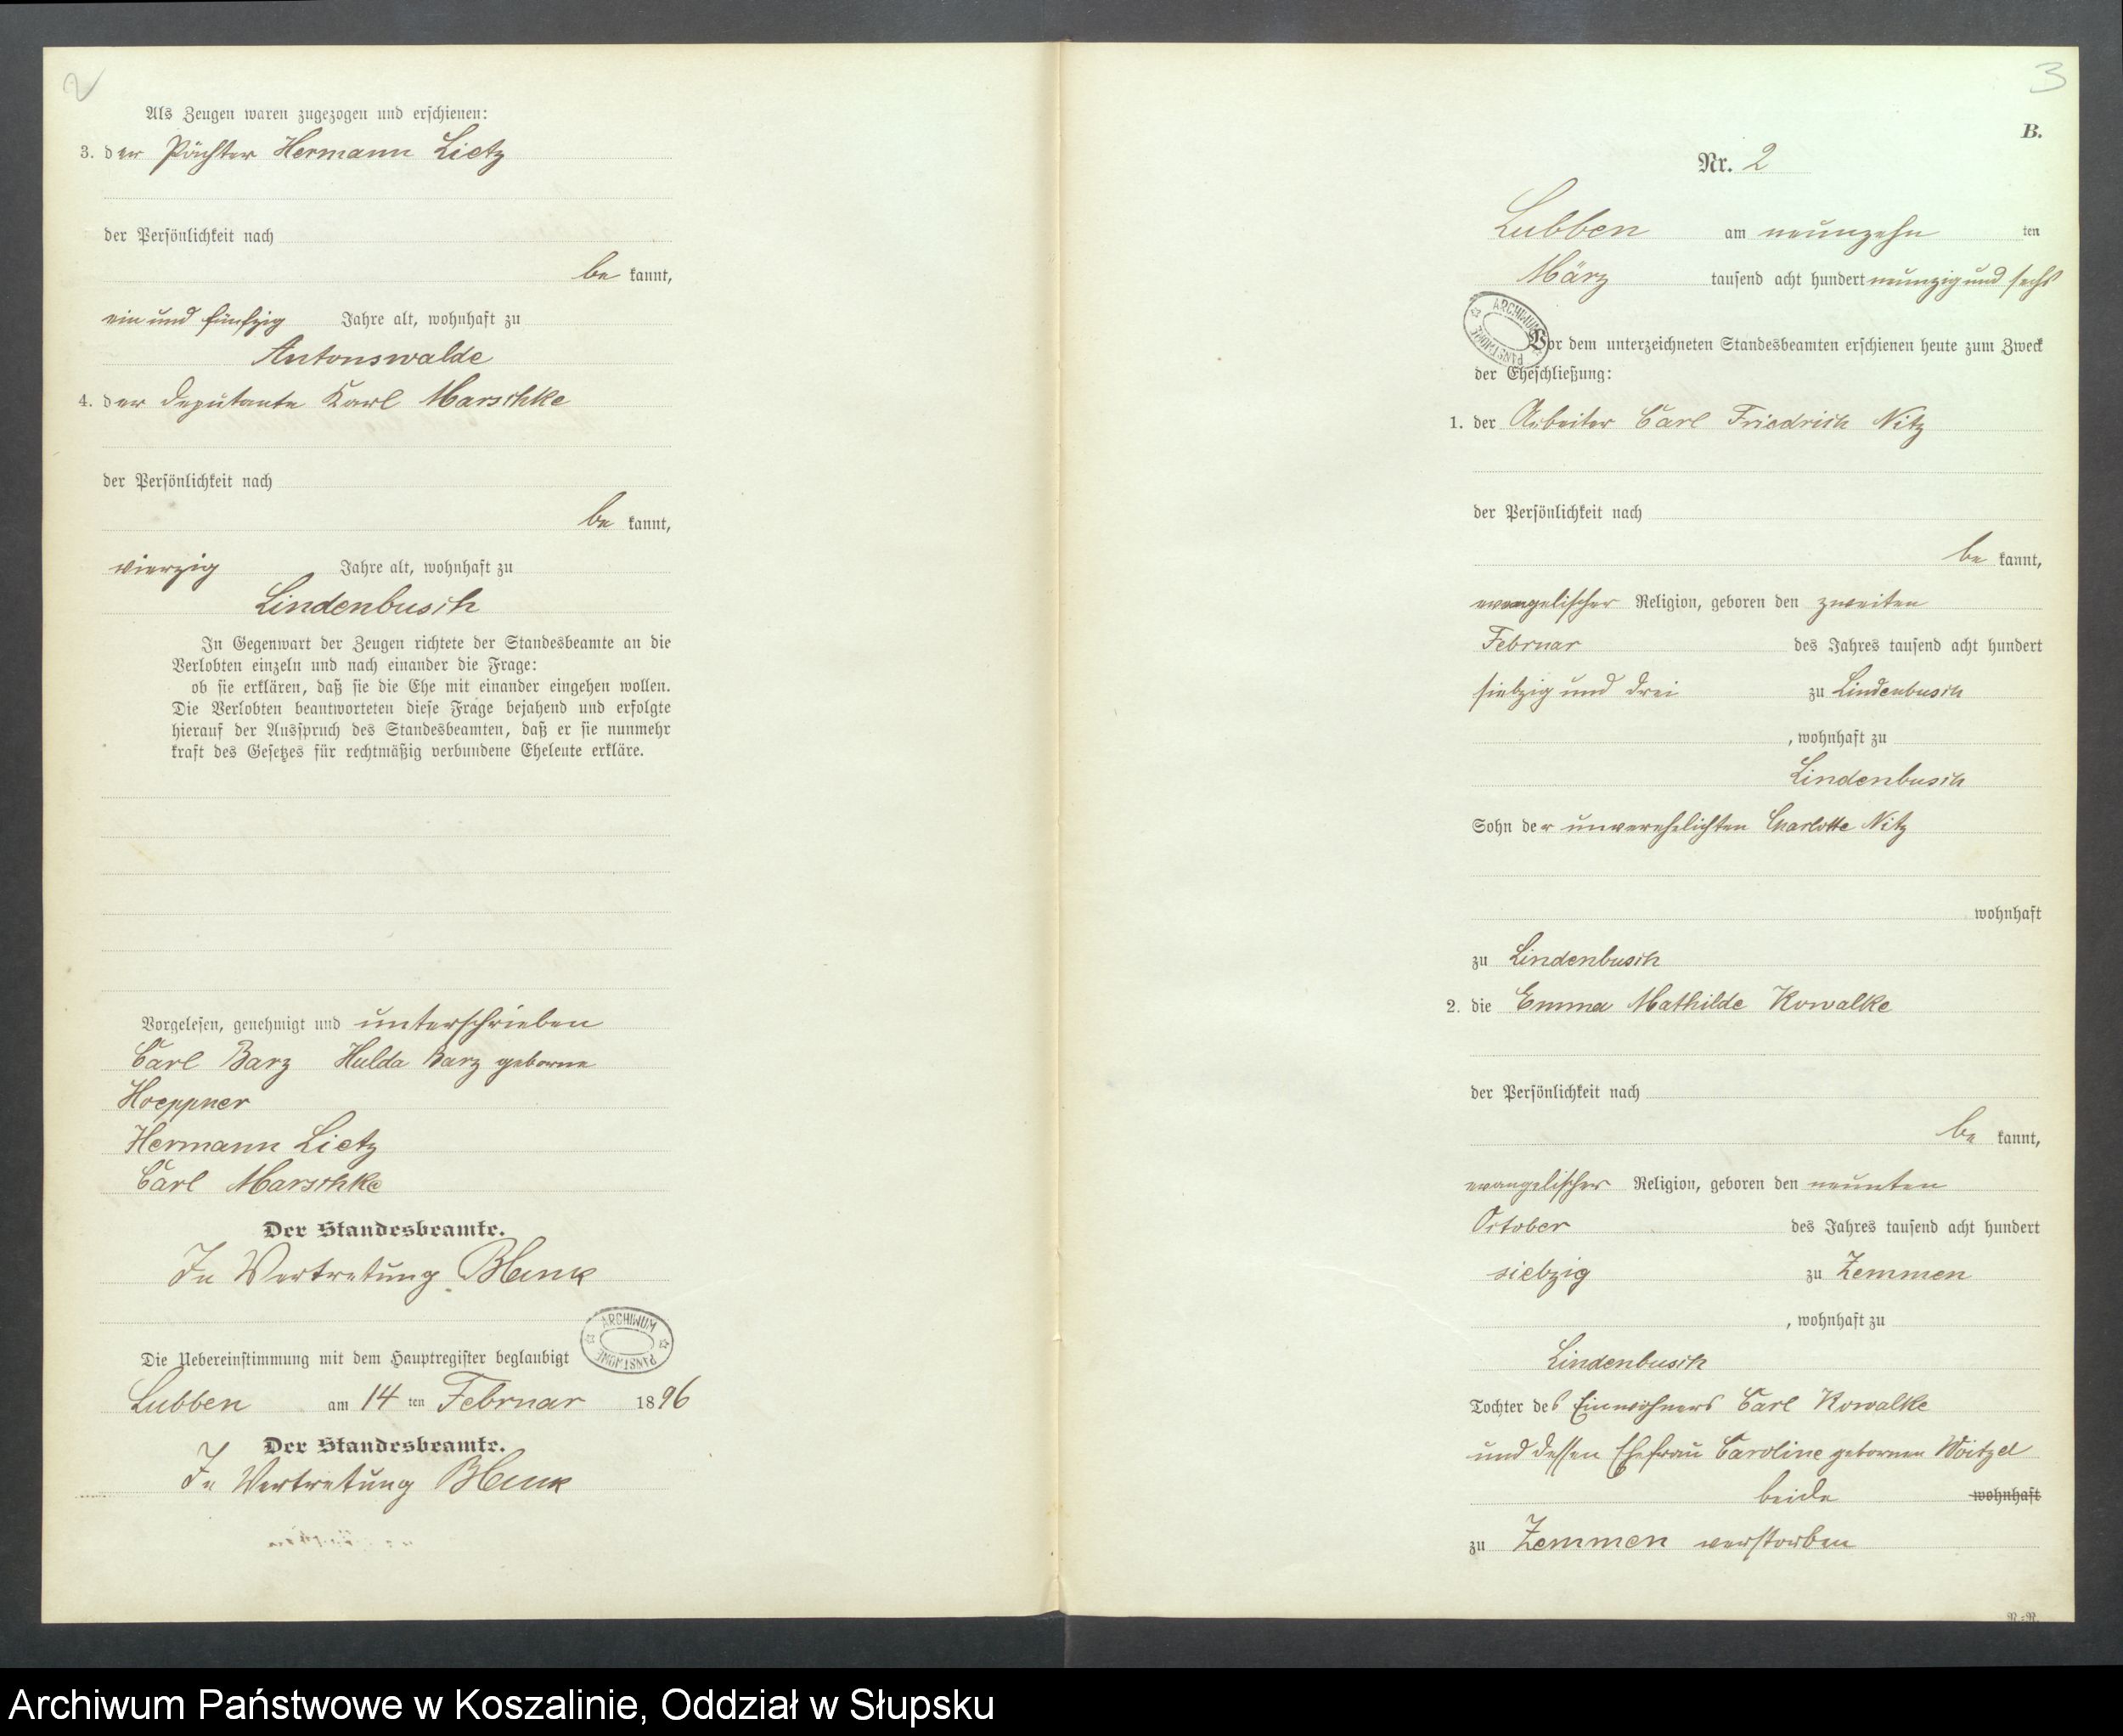 2
Als Zeugen waren zugezogen und erschienen:
3. der Pächter Hermann Lietz
der Persönlichkeit nach
be kannt,
ein und fünfzig Jahre alt, wohnhaft zu
Antonswalde
4. der Deputante Karl Marschke
der Persönlichkeit nach
be kannt,
vierzig Jahre alt, wohnhaft zu
Lindenbusch
In Gegenwart der Zeugen richtete der Standesbeamte an die
Verlobten einzeln und nach einander die Frage:
ob sie erklären, daß sie die Ehe mit einander eingehen wollen.
Die Verlobten beantworteten diese Frage bejahend und erfolgte
hierauf der Ausspruch des Standesbeamten, daß er sie nunmehr
kraft des Gesetzes für rechtmäßig verbundene Eheleute erkläre.
Vorgelesen, genehmigt und unterschrieben
Carl Barz Hulda Barz geborne
Hoeppner
Hermann Lietz
Carl Marschke
Der Standesbeamte.
In Vertretung
ARCHIWUM PAŃSTWOWE
Die Uebereinstimmung mit dem Hauptregister beglaubigt
Lubben am 14 ten Februar 1896
Der Standesbeamte.
In Vertretung
3
B.
Nr. 2
Lubben am neunzehn ten
März tausend acht hundert neunzig und sechs
ARCHIWUM PAŃSTWOWE
Vor dem unterzeichneten Standesbeamten erschienen heute zum Zweck
der Eheschließung:
1. der Arbeiter Carl Friedrich Nitz
der Persönlichkeit nach
be kannt,
evangelischer Religion, geboren den zweiten
Februar des Jahres tausend acht hundert
siebzig und drei zu Lindenbusch
, wohnhaft zu
Lindenbusch
Sohn der unverehelichten Charlotte Nitz
wohnhaft
zu Lindenbusch
2. die Emma Mathilde Kowalke
der Persönlichkeit nach
be kannt,
evangelischer Religion, geboren den neunten
October des Jahres tausend acht hundert
siebzig zu Zemmen
, wohnhaft zu
Lindenbusch
Tochter des Einwohners Carl Kowalke
und dessen Ehefrau Caroline gebornen Woitzel
beide wohnhaft
zu Zemmen verstorben
Archiwum Państwowe w Koszalinie, Oddział w Słupsku